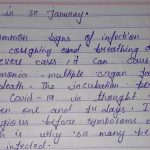 in 30 January.
ommon signs of infection
coughing and breathing d
severe cases it can caus
monia, multiple organ fa
death. The incubation per
Covid-19 is thought
een one and 14 days. I
gious before symptoms a
is why so many be
infected.